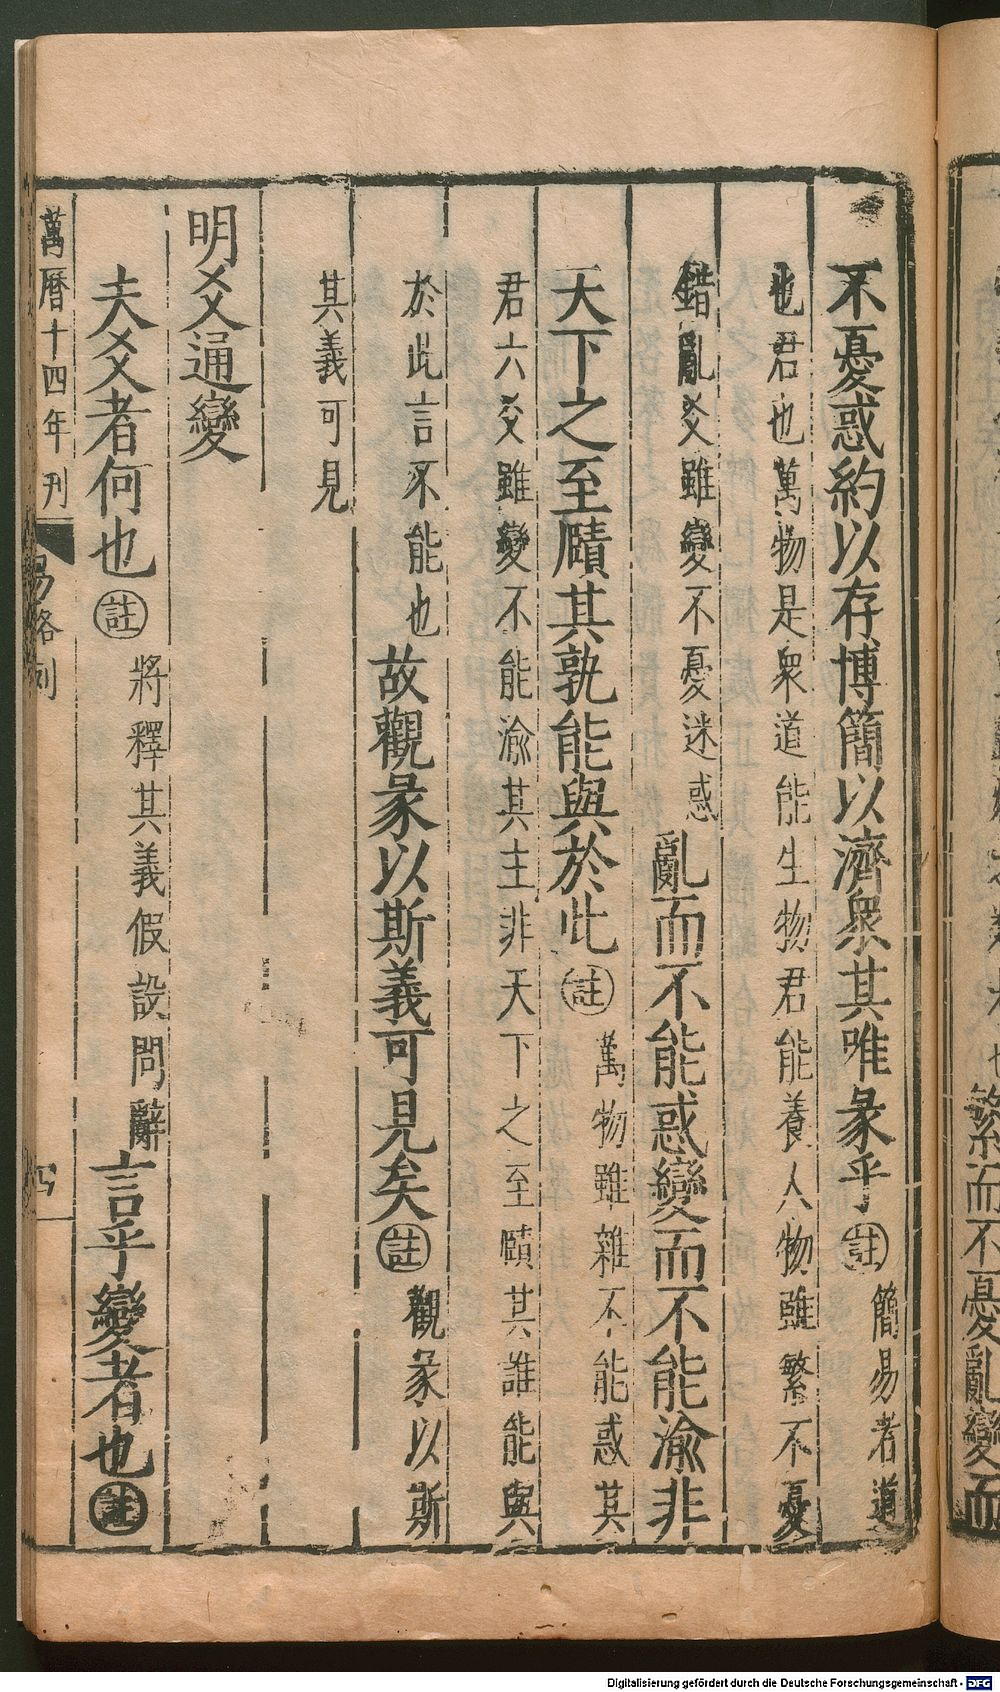 繁而不憂亂變而
不憂惑約以存博簡以濟衆其唯彖乎註簡易者道
也君也萬物是衆道能生物君能養人物雖繁不憂
錯亂爻雖變不憂迷惑亂而不能惑變而不能渝非
天下之至賾其孰能與於此註萬物雖雜不能惑其
君六爻雖變不能渝其主非天下之至賾其誰能與
於此言不能也故觀彖以斯義可見矣註觀彖以斯
其義可見
明爻通變
夫爻者何也註將釋其義假設問辭言乎變者也註
萬曆十四年刊 易略例 四
Digitalisierung gefördert durch die Deutsche Forschungsgemeinschaft - DFG